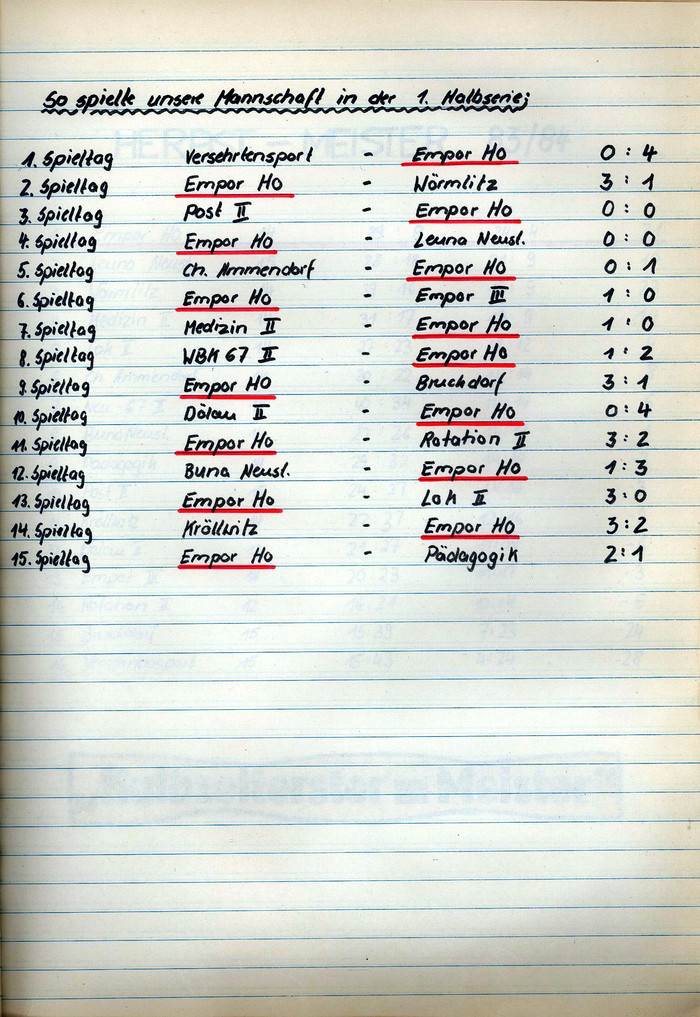 So spielte unsere Mannschaft in der 1. Halbserie;
HERBST - MEISTER 83/84
1. Spieltag Versehrtensport - Empor HO 0 : 4
2. Spieltag Empor HO - Wörmlitz 3 : 1
3. Spieltag Post II - Empor HO 0 : 0
4. Spieltag Empor Ho - Leuna Neusl. 0 : 0
5. Spieltag Ch. Ammendorf - Empor HO 0 : 1
6. Spieltag Empor Ho - Empor III 1 : 0
7. Spieltag Medizin II - Empor Ho 1 : 0
8. Spieltag WBK 67 II - Empor Ho 1 : 2
9. Spieltag Empor HO - Bruchdorf 3 : 1
10. Spieltag Dölau II - Empor Ho 0 : 4
11. Spieltag Empor Ho - Rotation II 3 : 2
12. Spieltag Buna Neusl. - Empor Ho 1 : 3
13. Spieltag Empor Ho - Lok II 3 : 0
14. Spieltag Kröllwitz - Empor Ho 3 : 2
15. Spieltag Empor Ho - Pädagogik 2 : 1